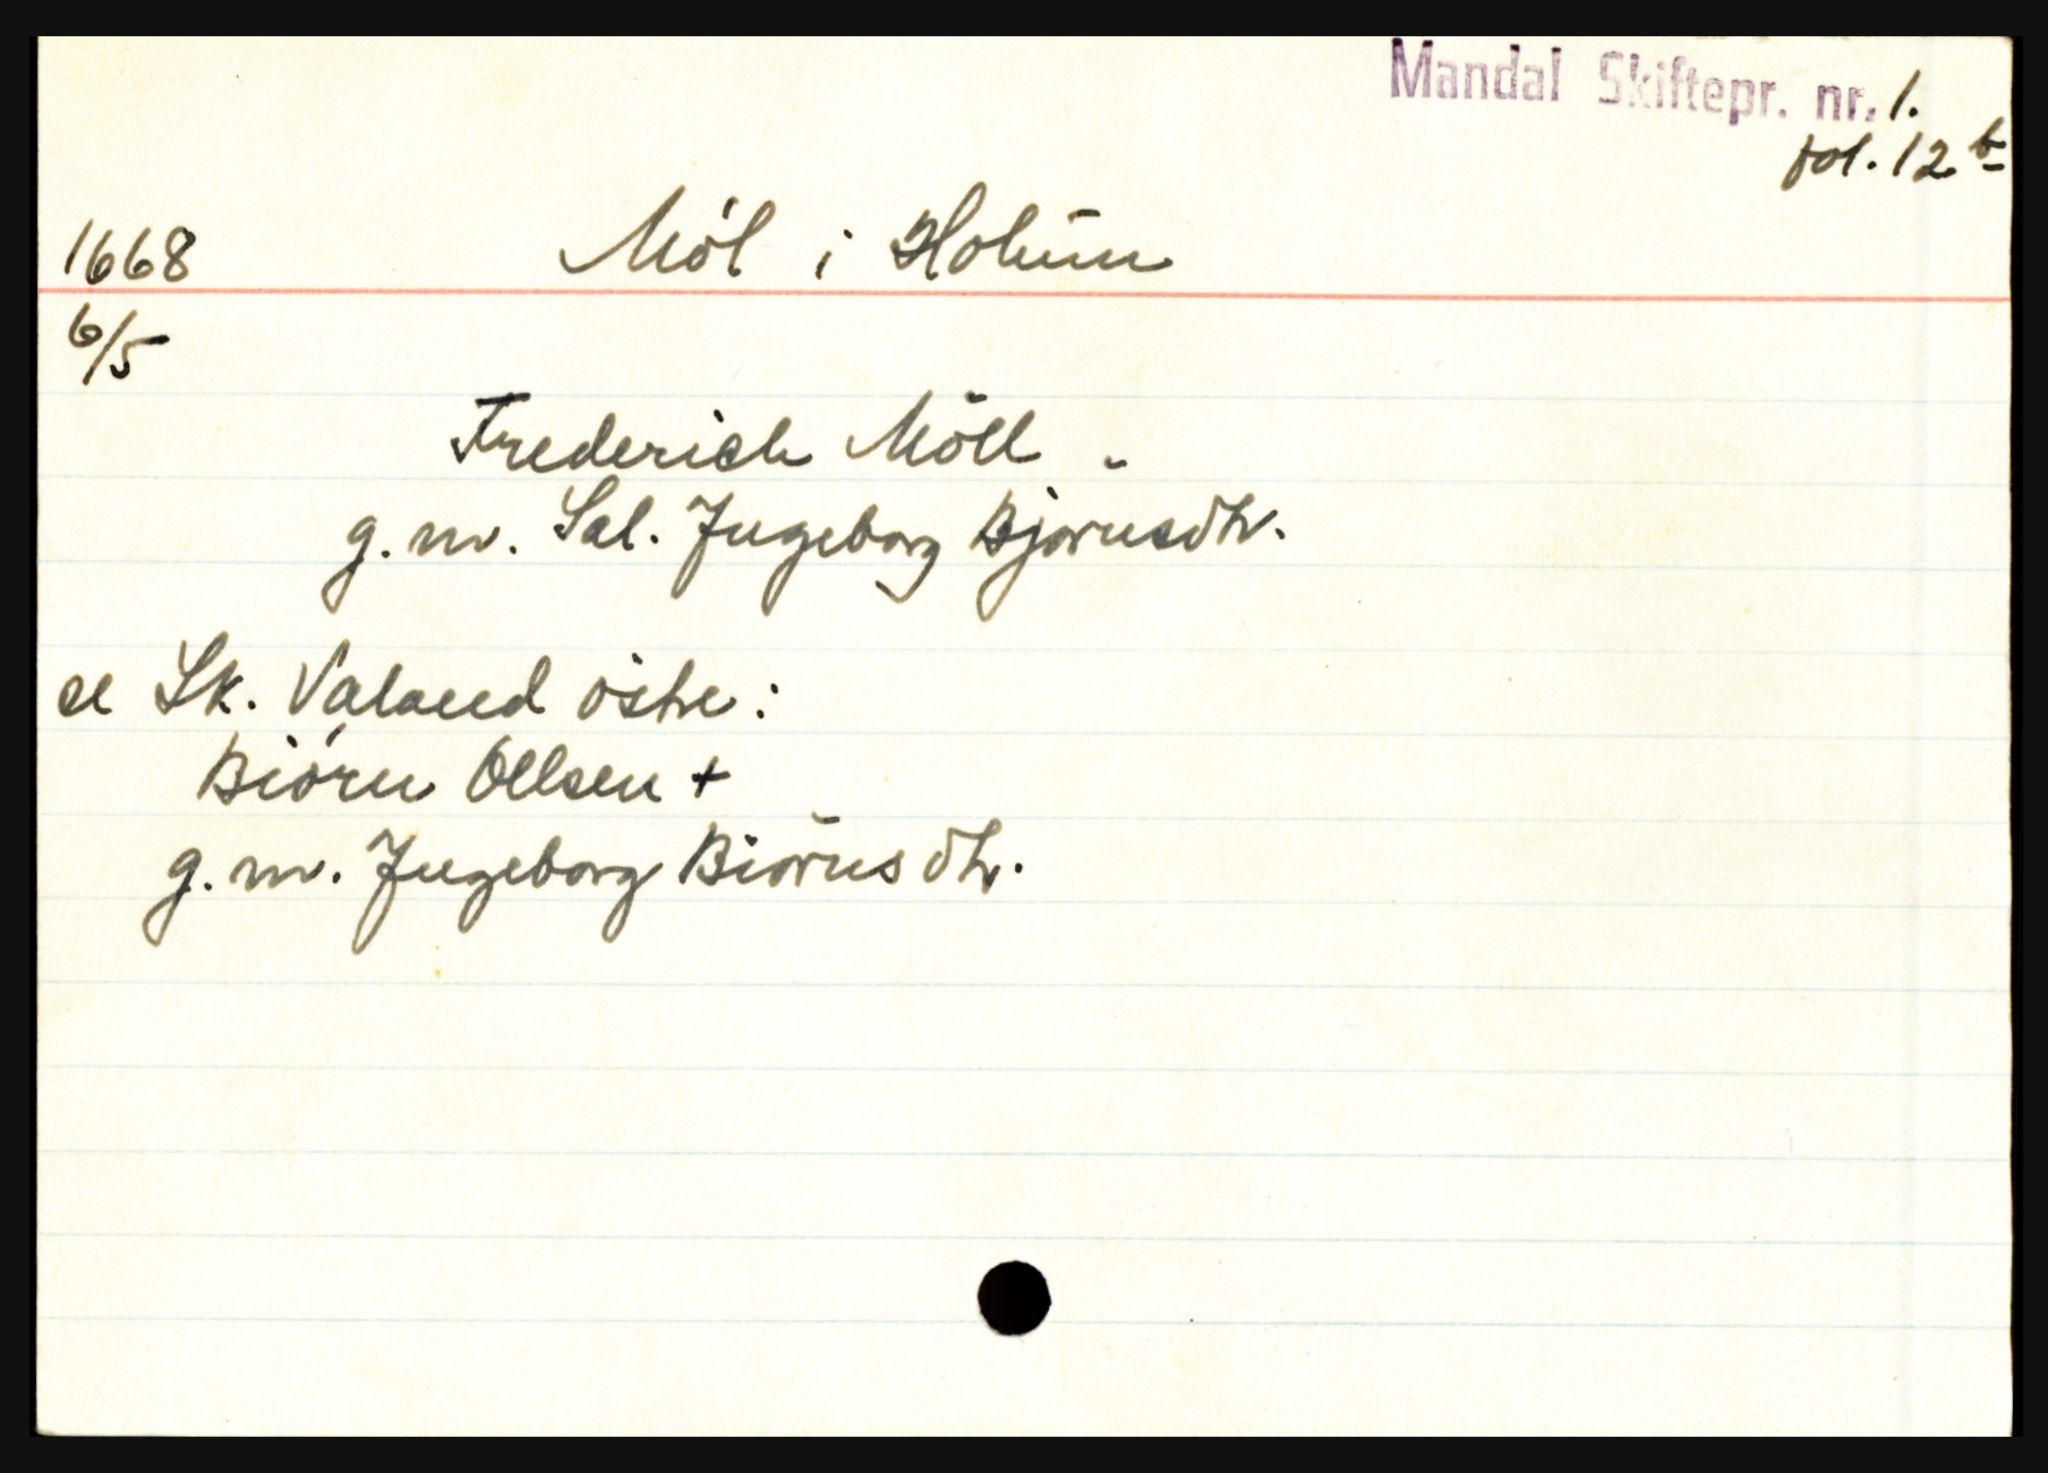 Mandal Skiftepr. nr. 1.
fol. 12 b
1668 Möl i Holum
6/5
Frederich Möll -
g. m. Sal. Ingeborg Bjørnsdtr.
se Sk. Valand östre:
Biörn Ollsen +
g. m. Ingeborg Biörnsdtr.